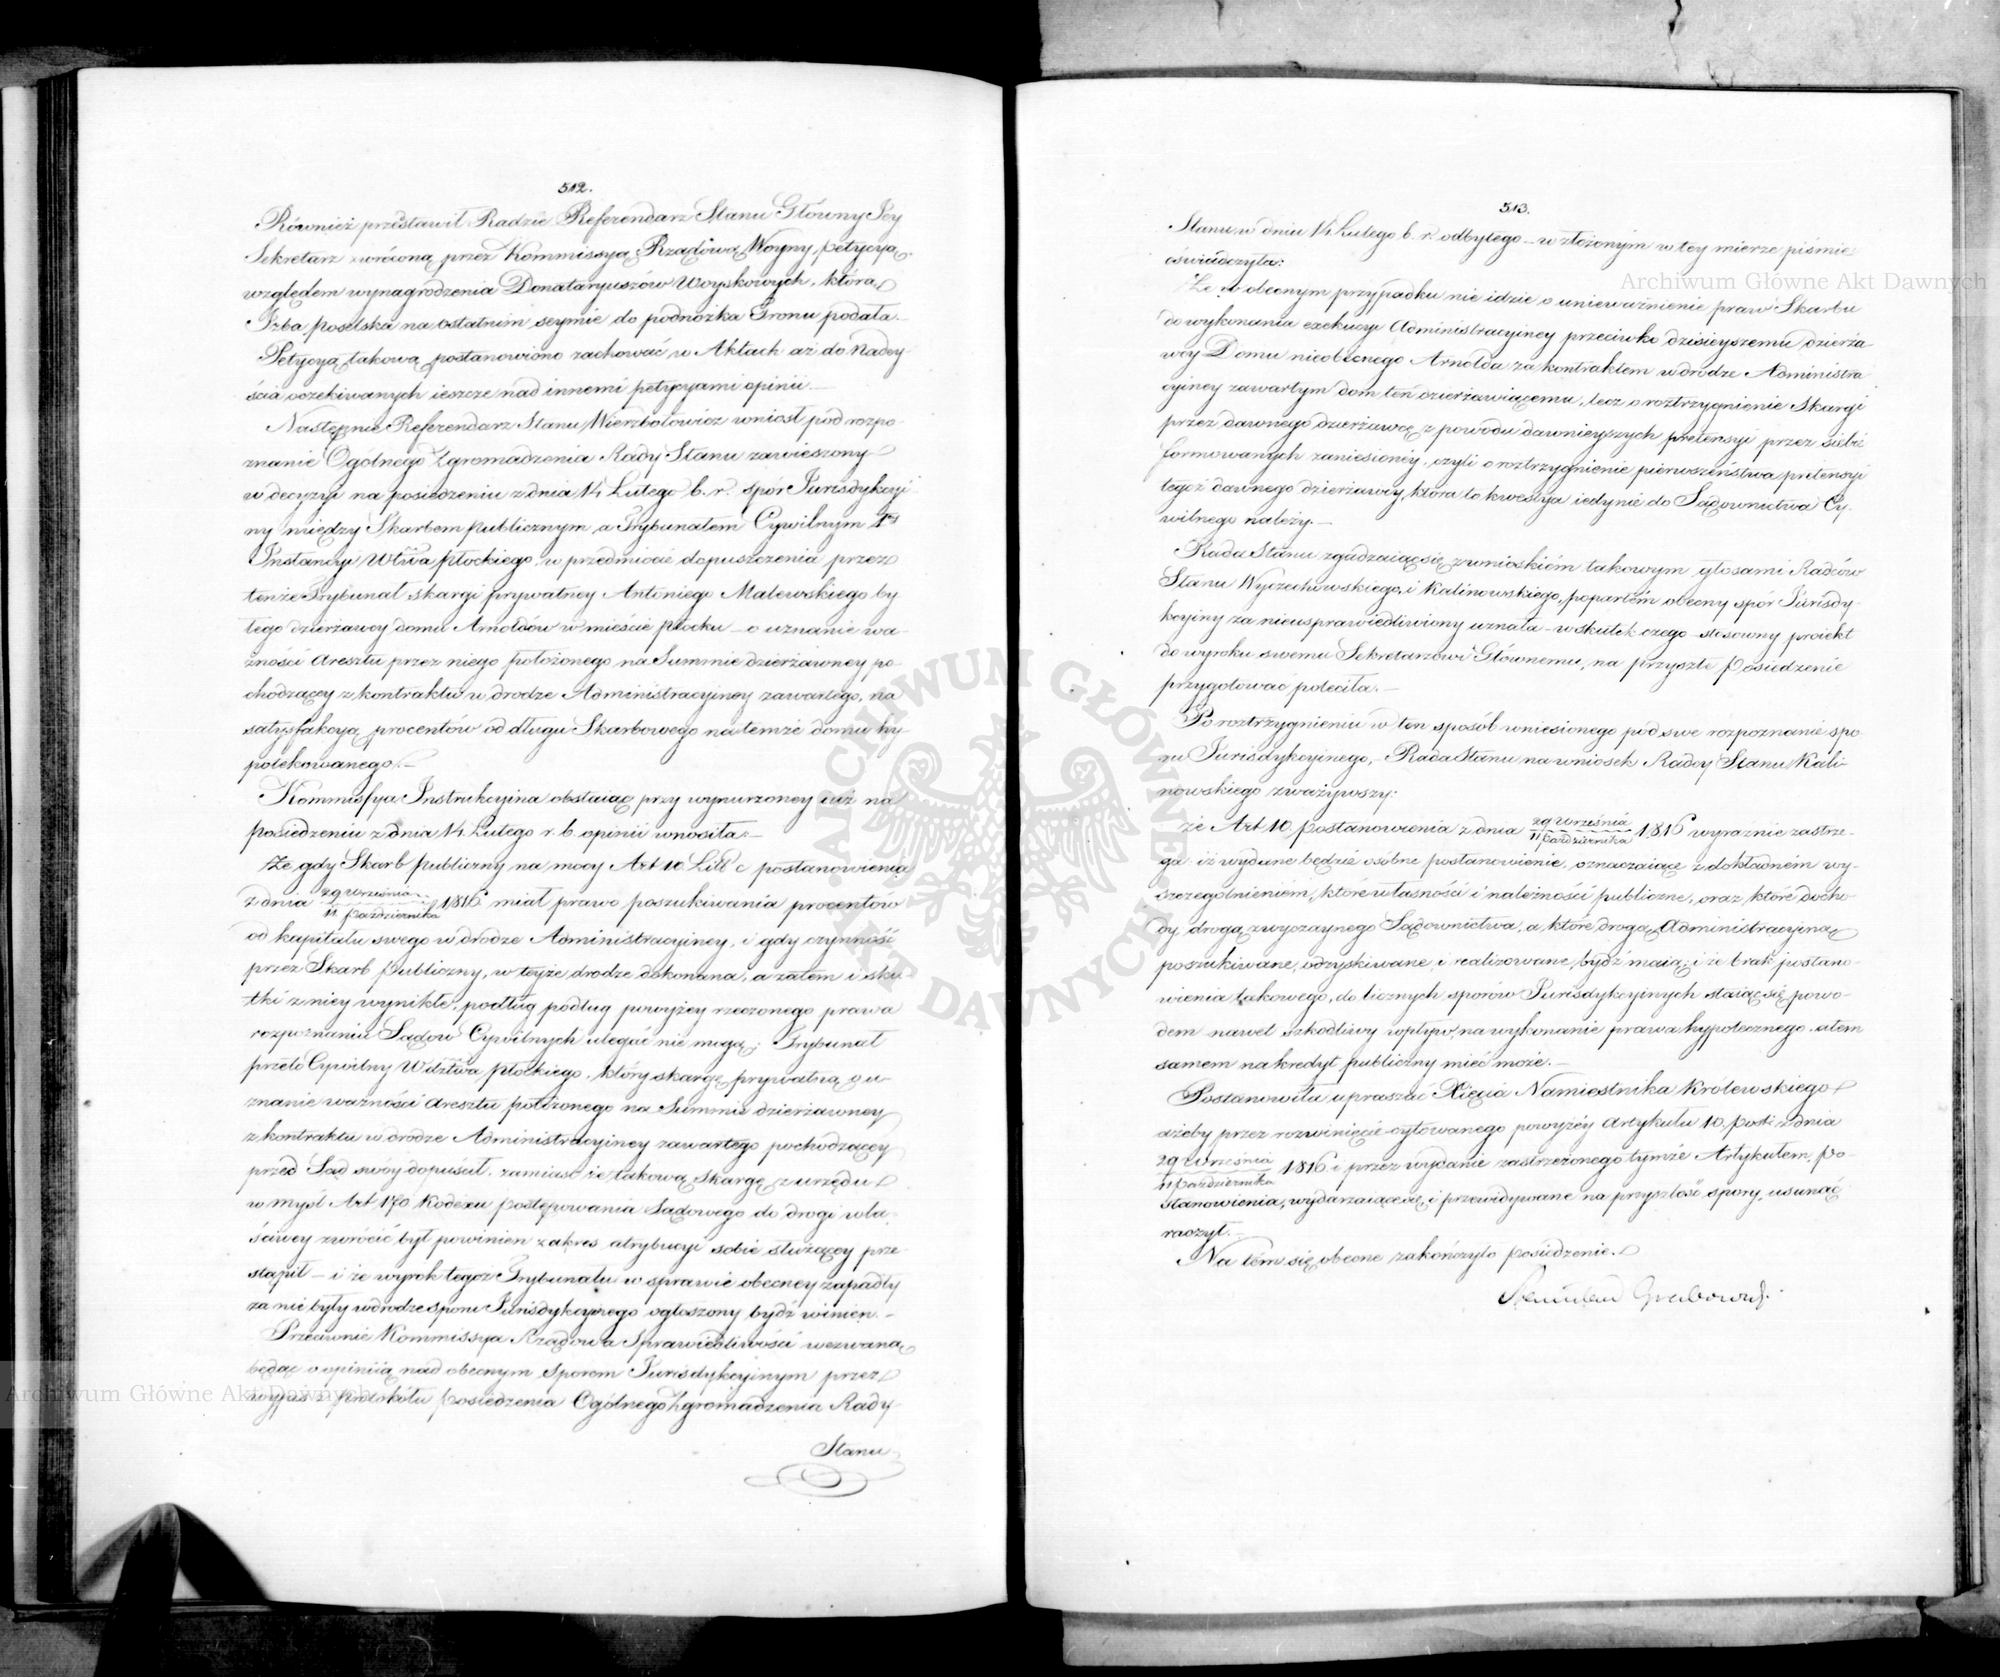 512.
Również przedstawił Radzie Referendarz Stanu Główny Jey
Sekretarz zwróconą przez Kommissyą Rządową Woyny, petycyą
względem wynagrodzenia Donataryuszów Woyskowych, którą
Izba poselska na ostatnim seymie do podnóżka Tronu podała.
Petycyą takową postanowiono zachować w Aktach aż do nadey-
ścia oczekiwanych ieszcze nad innemi petycyami opinii.—
Następnie Referendarz Stanu Wierzbołowicz wniosł pod rozpo-
znanie Ogólnego Zgromadzenia Rady Stanu zawieszony
w decyzyi na posiedzeniu z dnia 14 Lutego b. r. spór Jurisdykcyi-
ny między Skarbem publicznym a Trybunałem Cywilnym 1éy
Instancyi Wdztwa Płockiego, w przedmiocie dopuszczenia przez
tenże Trybunał skargi prywatney Antoniego Malewskiego by
łego dzierżawcy domu Arnoldów w mieście Płocku — o uznanie wa-
żności aresztu przez niego położonego na Summie dzierżawney po-
chodzącey z kontraktu w drodze Administracyiney zawartego, na
satysfakcyą procentów od długu Skarbowego na temże domu hy-
potekowanego.—
Kommissya Instrukcyina obstaiąc przy wynurzoney iuż na
posiedzeniu z dnia 14 Lutego r. b. opinii wnosiła:—
Że gdy Skarb publiczny na mocy Art 10 Litt c postanowienia
z dnia 29 Września / 11 Października 1816 miał prawo poszukiwania procentów
od kapitału swego w drodze Administracyiney, i gdy czynność
przez Skarb publiczny, w teyże drodze dokonana, a zatem i sku
tki z niey wynikłe, podług podług powyżey rzeczonego prawa
rozpoznaniu Sądów Cywilnych ulegać nie mogą; Trybunał
przeto Cywilny Wdztwa Płockiego, który skargę prywatną o u-
znanie ważności aresztu położonego na Summie dzierżawney
z kontraktu w drodze Administracyiney zawartego pochodzącey
przed Sąd swóy dopuścił, zamiast że takową skargę z urzędu
w myśl Art 170 Kodexu postępowania Sądowego do drogi wła-
ściwey zwrócić był powinien zakres atrybucyi sobie służącey prze-
stąpił — i że wyrok tegoż Trybunału w sprawie obecney zapadły
za nie były w drodze sporu Jurisdykcyinego ogłoszony bydź winien.—
Przeciwnie Kommissya Rządowa Sprawiedliwości wezwaną
będąc o opiniią nad obecnym sporem Jurisdykcyinym przez
wypis z protokółu posiedzenia Ogólnego Zgromadzenia Rady
Stanu
513.
Stanu w dniu 14 Lutego b. r. odbytego — w złożonym w tey mierze piśmie
oświadczyła:
Że w obecnym przypadku nie idzie o unieważnienie praw Skarbu
do wykonania exekucyi Administracyiney przeciwko dzisieyszemu dzierża-
wcy Domu nieobecnego Arnolda za kontraktem w drodze Administra
cyiney zawartym dom ten dzierżawiącemu, lecz o roztrzygnienie Skargi
przez dawnego dzierżawcę z powodu dawnieyszych pretensyi przez siebie
formowanych zaniesioney, czyli o roztrzygnienie pierwszeństwa pretensyi
tegoż dawnego dzierżawcy, która to kwestya iedynie do Sądownictwa Cy-
wilnego należy.—
Rada Stanu zgadzaiąc się z wnioskiem takowym głosami Radców
Stanu Wyczechowskiego, i Kalinowskiego, popartém obecny spór Jurisdy-
kcyiny za nieusprawiedliwiony uznała — w skutek czego stosowny proiekt
do wyroku swemu Sekretarzowi Głównemu, na przyszłe posiedzenie
przygotować poleciła.—
Po roztrzygnieniu w ten sposób wniesionego pod swe rozpoznanie spo-
ru Jurisdykcyinego,— Rada Stanu na wniosek Radcy Stanu Kali-
nowskiego zważywszy:
że Art 10 postanowienia z dnia 29 Września / 11 Października 1816 wyraznie zastrze-
ga: iż wydane będzie osóbne postanowienie, oznaczaiące z dokładném wy-
szczególnieniem, które własności i należności publiczne, oraz które docho-
dy drogą zwyczaynego Sądownictwa, a które drogą Administracyiną
poszukiwane, odzyskiwane, i realizowane, bydź maią; i że brak postano-
wienia takowego, do licznych sporów Jurisdykcyinych staiąc się powo-
dem nawet szkodliwy wpływ, na wykonanie prawa hypotecznego, a tem
samem na kredyt publiczny mieć może.—
Postanowiła upraszać Xięcia Namiestnika Królewskiego
ażeby przez rozwinięcie cytowanego powyżey Artykułu 10, post: z dnia
29 Września / 11 Października 1816 i przez wydanie zastrzeżonego tymże Artykułem, po-
stanowienia, wydarzaiące się, i przewidywane na przyszłość spory, usunąć
raczył.—
Na tém się obecne zakończyło posiedzenie.
Stanisław Grabowski